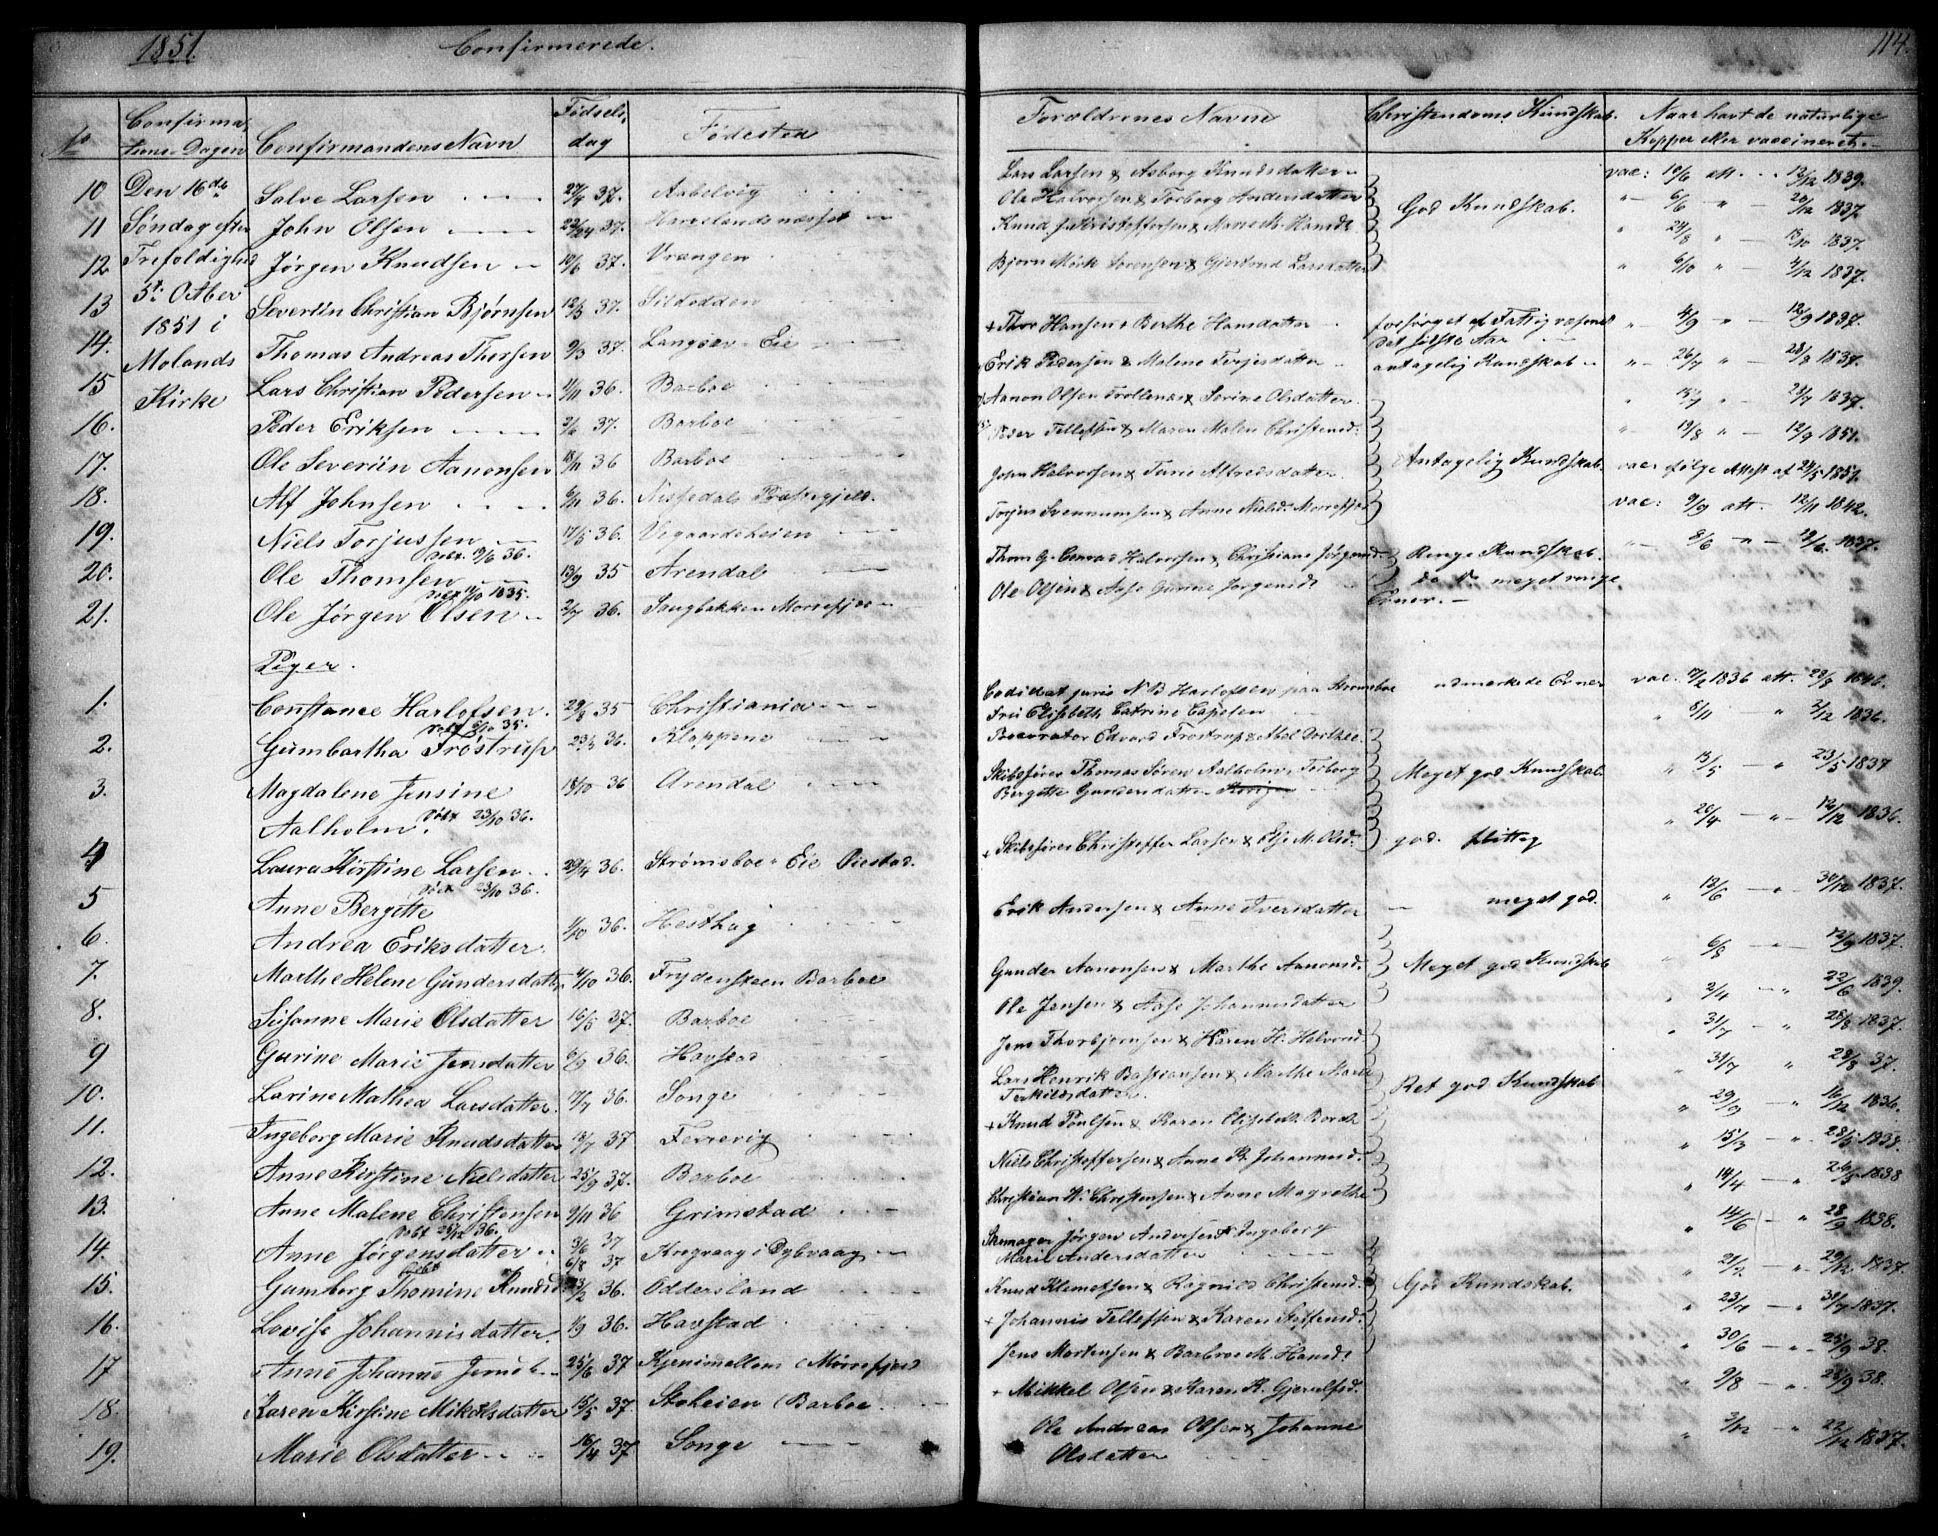 1851. Confirmerede. 114.
No Confirma- Confirmandens Navn Fødsels, Fødested Forældrenes Navne Christendoms Kundskab. Naar havt de naturlige
tions-Dagen dag Kopper eller vaccineret.
10 Den 16de Salve Larsen 27/4 37. Aabelvig Lars Larsen & Asborg Knudsdatter vac: 10/6 att. 12/12 1839.
11 Søndag efter John Olsen 37. Ole Halvorsen & Torborg Andersdatter God Kundskab. 6/6 20/12 1837.
12 Trefoldighed Jørgen Knudsen 10/6 37. Vrangen Knud Kristoffersen & Maren M. Hansd. 24/8 13/10 1837.
13 5te Octber Severiin Christian Bjørnsen 12/3 37. Sildodden Bjørn Mørk Sørensen & Gjertrud Larsdatter 6/10 4/12 1837.
14. 1851 i Thomas Andreas Thorsen 9/3 37. Langsæv Eie + Thor Hansen & Berthe Hansdatter forsørget af Fattigvæsenet 4/9 12/9 1837.
det første Aar
15 Molands Lars Christian Pedersen 11/11 36. Barboe Erik Pedersen & Malene Terjesdatter antagelig Kundskab 26/7 28/8 1837.
16. Kirke Peder Eriksen 2/6 37. Barboe Aanon Olsen Trollenæs & Serine Olsdatter 15/7 24/7 1837.
17. Ole Severiin Aanonsen 18/11 36 Barboe Peder Tellefsen & Maren Malen Christensd. 19/8 12/9 1851.
18. Alf Johnsen 6/11 36. Nissedals Præstegjeld. John Halvorsen & Turie Alfredsdatter Antagelig Kundskab. vac: følge Attest af 24/5 1851.
19. Niels Torjussen 17/5 36. Vegaardsheien Torjus Svennumsen & Anne Nielsd. Morrefjær vac: 9/9 att. 12/11 1842.
døbt 9/6 36.
20. Ole Thomsen 13/9 35 Arendal Thom G. Conrad Halvorsen & Christiane Jørgensd. Ringe Kundskab. 8/6 19/6 1837.
døbt 4/10 1835.
21. Ole Jørgen Olsen 2/7 36. Saugbakken Morrefjær Ole Olsen & Aase Gurine Jørgensd. do do meget ringe
Evner.
Piger.
1. Constance Harlofsen 29/8 35 Christiania Candidat juris N B Harlofsen paa Strømsboe udmærkede Evner vac. 17/2 1836 att. 28/8 1846.
døbt 6/10 35. Fru Elisabeth Catrine Capelen 8/11 2/12 1836.
2. Gumbartha Frøstrup 23/5 36. Kloppene Procurator Edvard Frøstrup & Abel Dorthe.
3. Magdalene Jensine 18/10 36 Arendal Skibsfører Thomas Søren Aalholm, Torborg Meget god Kundskab. 13/5 23/5 1837
Aalholm. døbt 23/10 36. Bergitte Gundersdatter 20/4 12/12 1836.
4 Laura Kirstine Larsen 29/4 36. Strømsboe Eie Øiestad. + Skibsfører Christoffer Larsen & Elje M. Olsd. god. flittig
døbt 23/10 36.
5 Anne Bergitte 13/6 30/12 1837.
6. Andrea Eriksdatter 1/10 36. Hesthag Erik Andersen & Anne Iversdatter meget god. 6/8 12/9 1837.
7. Marthe Helene Gundersdatter 4/10 36. Frydensteen Barboe Gunder Aanonsen & Marthe Aanonsd. Meget god Kundskab 2/4 22/6 1839.
8. Susanne Marie Olsdatter 16/5 37. Barboe Ole Jensen & Aase Johannesdatter 31/7 28/8 1837.
9 Gurine Marie Jensdatter 6/9 36. Havstad Jens Thorbjørnsen & Karen H. Halvorsd. 31/7 28/8 37.
10. Larine Mathea Larsdatter 17/7 36. Songe Lars Henrik Bastiansen & Marthe Marie Ret god Kundskab 29/9 16/12 1836.
Terkildsdatter
11. Ingeborg Marie Knudsdatter 13/7 37 Ferrevig + Knud Poulsen & Karen Elisabeth Bordt 15/3
12. Anne Kirstine Nielsdatter 25/9 37. Barboe Niels Christoffersen & Anne K. Johannesd. 14/4 1838
13. Anne Malene Christensen 9/11 36 Grimstad Christian H. Christensen & Anne Magrethe 14/6 28/9 1838.
døbt 25/12 36.
14. Anne Jørgensdatter 3/6 37 Krogvaag i Dybvaag Skomager Jørgen Andersen & Ingeborg
døbt 6/8 37 Marie Andersdatter 21/2 29/12 1837.
15. Gumborg Thomine Knudsd. 23/2 36. Oddersland Knud Klemetsen & Ragnild Christensd. God Kundskab. 23/7 30/7 1837.
16. Lovise Johannisdatter. 1/9 36. Havstad + Johannis Tellefsen & Karen Steffensd. 30/6 25/9 38.
17 Anne Johanne Jensd. 25/6 37 Kjenimellem (Morrefjær Jens Mortensen & Barbroe M. Hansd. 9/8 25/9 38.
18. Karen Kirstine Mikkelsdatter 15/5 37. Stoheien (Barboe + Mikkel Olsen & Karen K. Gjerulfsd.
19. Marie Olsdatter 16/4 37 Songe Ole Andreas Olsen & Johanne 3/12 22/12 1837.
Olsdatter